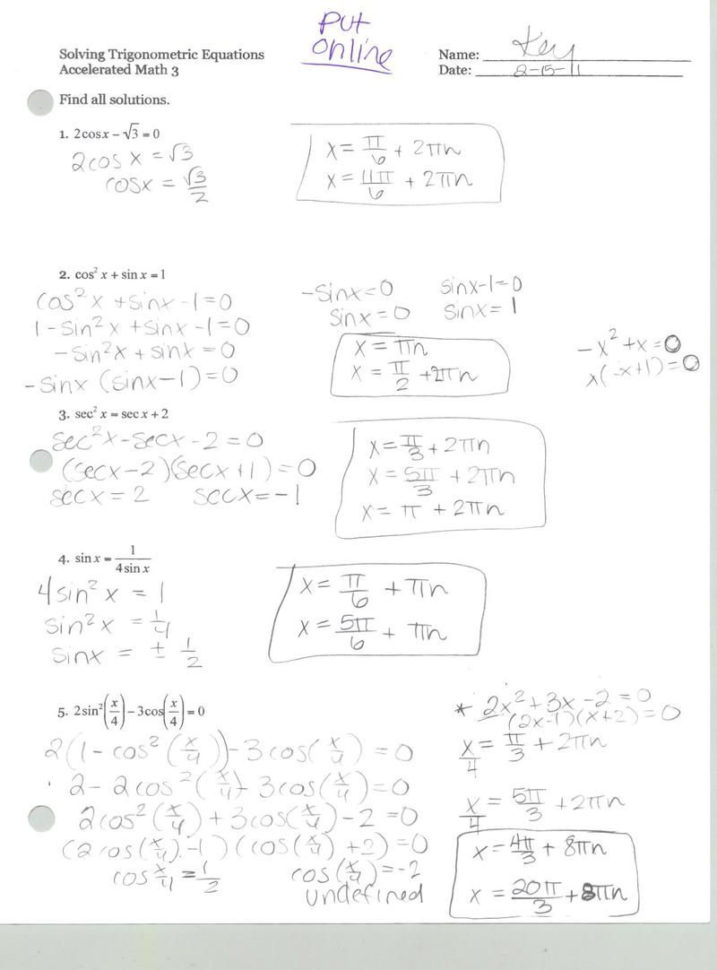 Put
online
Solving Trigonometric Equations
Accelerated Math 3
Name: Key
Date: 2-15-11
Find all solutions.
1. 2cosx − √3 = 0
2cos x = √3
cosx = √3/2
x = π/6 + 2πn
x = 11π/6 + 2πn
2. cos² x + sin x = 1
cos²x + sinx - 1 = 0
1 - sin²x + sinx - 1 = 0
-sin²x + sinx = 0
-sinx (sinx - 1) = 0
-sinx = 0 sinx-1=0
sinx = 0 sinx = 1
x = πn
x = π/2 + 2πn
-x² + x = 0
x(-x+1) = 0
3. sec² x = sec x + 2
sec²x - secx - 2 = 0
(secx - 2)(secx + 1) = 0
secx = 2 secx = -1
x = π/3 + 2πn
x = 5π/3 + 2πn
x = π + 2πn
4. sin x = 1/(4 sin x)
4sin²x = 1
sin²x = 1/4
sinx = ± 1/2
x = π/6 + πn
x = 5π/6 + πn
5. 2sin²(x/4) − 3cos(x/4) = 0
2(1 - cos²(x/4)) - 3cos(x/4) = 0
2 - 2cos²(x/4) - 3cos(x/4) = 0
2cos²(x/4) + 3cos(x/4) - 2 = 0
(2cos(x/4) - 1)(cos(x/4) + 2) = 0
cos x/4 = 1/2 cos(x/4) = -2
undefined
* 2x² + 3x - 2 = 0
(2x-1)(x+2) = 0
x/4 = π/3 + 2πn
x/4 = 5π/3 + 2πn
x = 4π/3 + 8πn
x = 20π/3 + 8πn